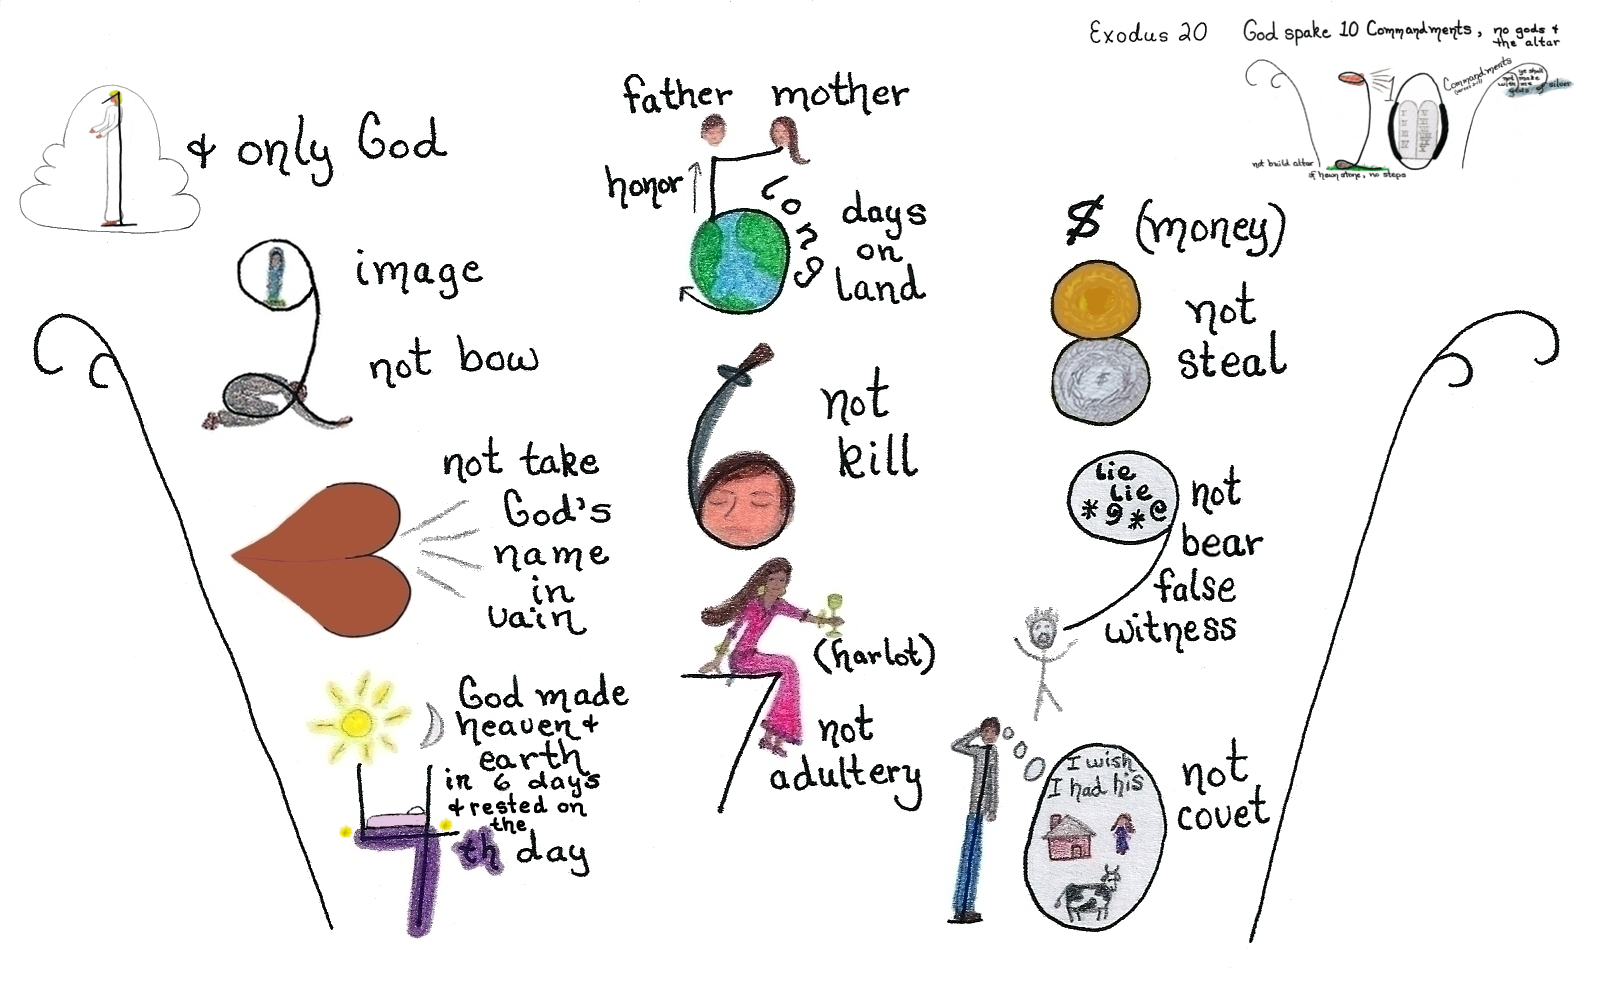 Exodus 20 God spake 10 Commandments, no gods &
the altar
Commandments
ye shall
not make
with me
gods of silver
not build altar
of hewn stone, no steps
1 & only God
image
not bow
not take
God's
name
in
vain
God made
heaven &
earth
in 6 days
& rested on
the
th day
father mother
honor
long
days
on
land
not
kill
(harlot)
not
adultery
$ (money)
not
steal
lie
lie
*9*@
not
bear
false
witness
I wish
I had his
not
covet